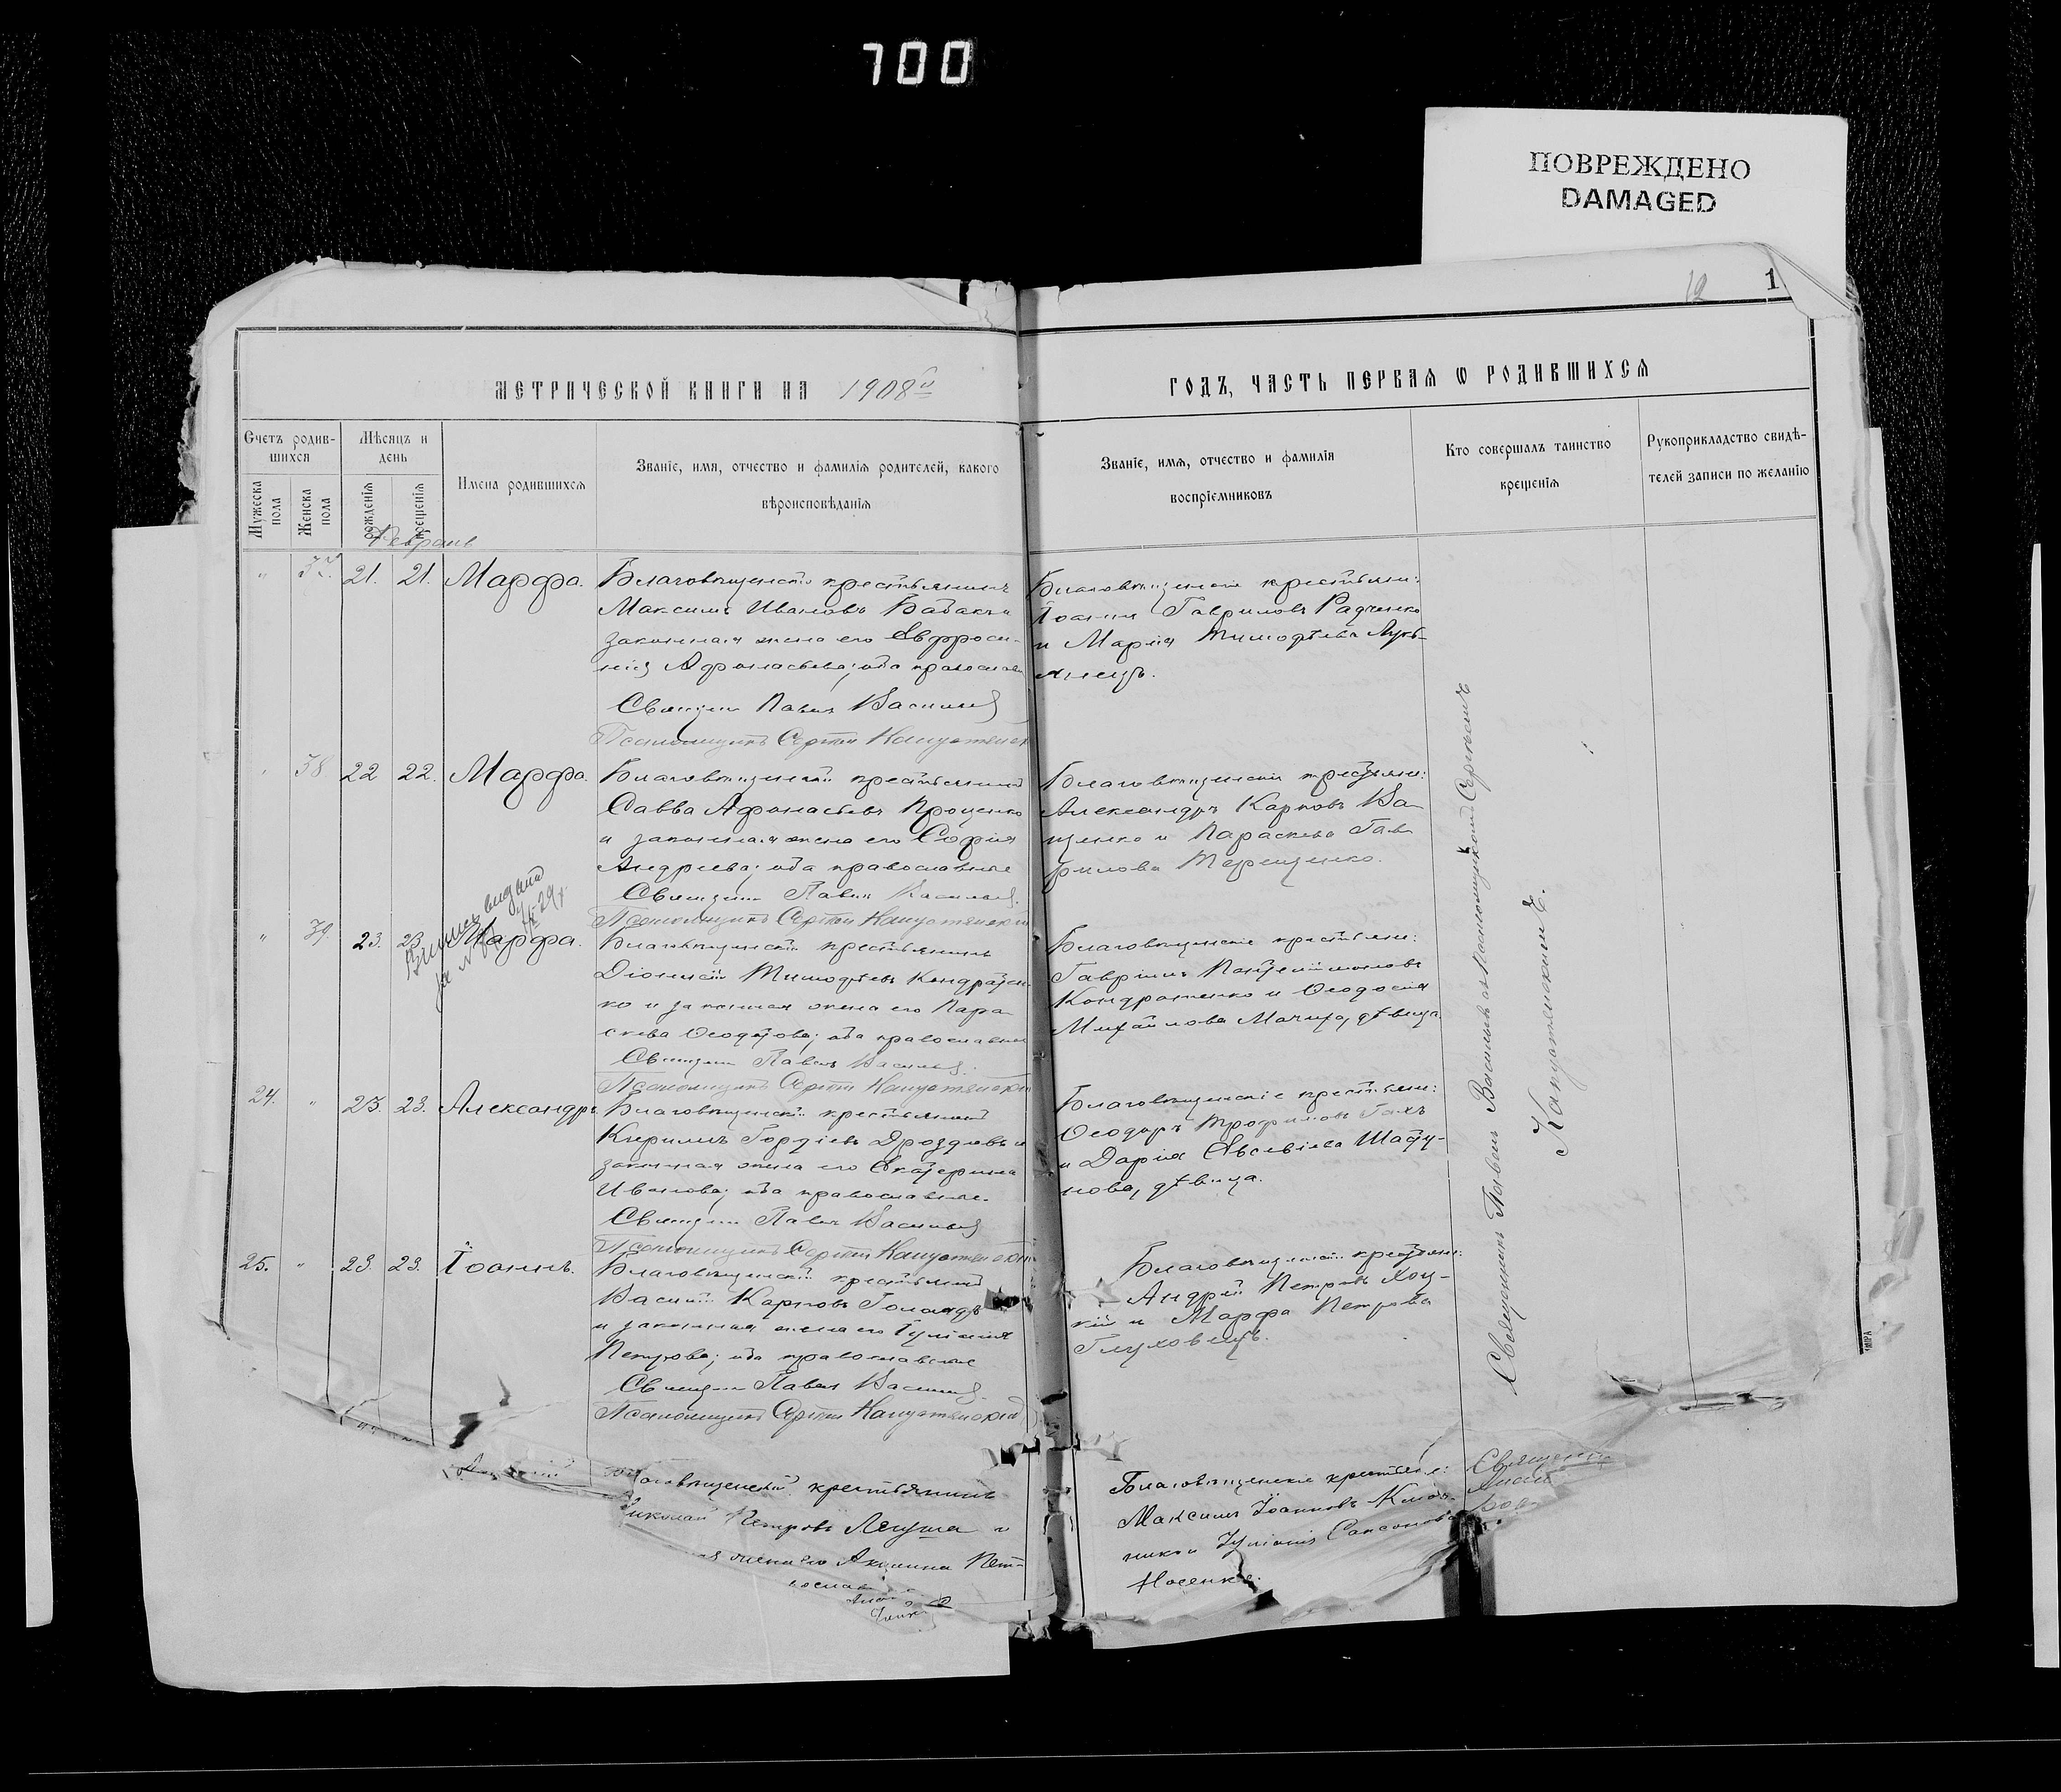 700
ПОВРЕЖДЕНО
DAMAGED
12
1
МЕТРИЧЕСКОЙ КНИГИ НА 1908й
ГОДЪ, ЧАСТЬ ПЕРВАЯ Ѡ РОДИВШИХСЯ
Счетъ родив-
шихся
Мужеска пола
Женска пола
Мѣсяцъ и
день
рожденія
крещенія
Имена родившихся
Званіе, имя, отчество и фамилія родителей, какого
вѣроисповѣданія
Званіе, имя, отчество и фамилія
воспріемниковъ
Кто совершалъ таинство
крещенія
Рукоприкладство свидѣ-
телей записи по желанію
Февраль
" 37. 21. 21. Марфа.
Благовѣщенскій крестьянинъ
Максимъ Ивановъ Бабакъ и
законная жена его Евфроси-
нія Афанасьева; оба православ
Священ Павелъ Васильев
Псаломщикъ Сергій Капустянск
Благовѣщенскіе крестьяне:
Іоаннъ Гавриловъ Радченко
и Марія Тимофѣева Лукь-
янецъ.
" 38 22 22. Марфа.
Благовѣщенскій крестьянинъ
Савва Афанасьевъ Проценко
и законная жена его Софія
Андреева; оба православные
Священ Павелъ Васильев.
Псаломщикъ Сергій Капустянскій
Благовѣщенскіе крестьяне:
Александръ Карповъ Ва-
щенко и Параскева Гав-
рилова Терещенко.
" 39. 23. 23. Марфа.
выдана
Благовѣщенскій крестьянинъ
Діонисій Тимофѣевъ Кондратен-
ко и законная жена его Пара-
скева Ѳеодотова; оба православные
Священ Павелъ Васильев.
Псаломщикъ Сергій Капустянскій
Благовѣщенскіе крестьяне:
Гавріилъ Пантелеймоновъ
Кондратенко и Ѳеодосія
Михайлова дѣвица.
24. " 23. 23. Александръ.
Благовѣщенскій крестьянинъ
Кириллъ Гордіевъ Дроздовъ и
законная жена его Екатерина
Иванова; оба православные.
Священ Павелъ Васильев
Псаломщикъ Сергій Капустянскій
Благовѣщенскіе крестьяне:
Ѳеодоръ Трофимовъ Гахъ
и Дарія Евсевіева Шату-
нова, дѣвица.
25. " 23. 23. Іоаннъ.
Благовѣщенскій крестьянинъ
Василій Карповъ
и законная жена его Іуліанія
Петрова; оба православные
Священ Павелъ Васильев.
Псаломщикъ Сергій Капустянскій
Благовѣщенскіе крестьяне:
Андрей Петровъ Хоц-
кій и Марфа Петрова
Глуховецъ.
Священникъ Павелъ Васильевъ съ псаломщикомъ Сергіемъ
Капустянскимъ.
Благовѣщенскій крестьянинъ
Николай Петровъ и
жена его Акилина Пет-
Благовѣщенскіе крестьяне:
Максимъ Іоанновъ
и Іуліанія Сапсонова
Носенко.
Священникъ